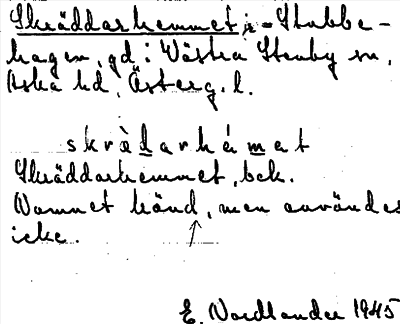 Skräddarhemmet, = Stubbe-
hagen, gd i Västra Stenby sn,
Aska hd, Österg. l.
skrädarhémet
Skräddarhemmet, bek.
Namnet känd, men användes
icke.
E. Nordlander 1945